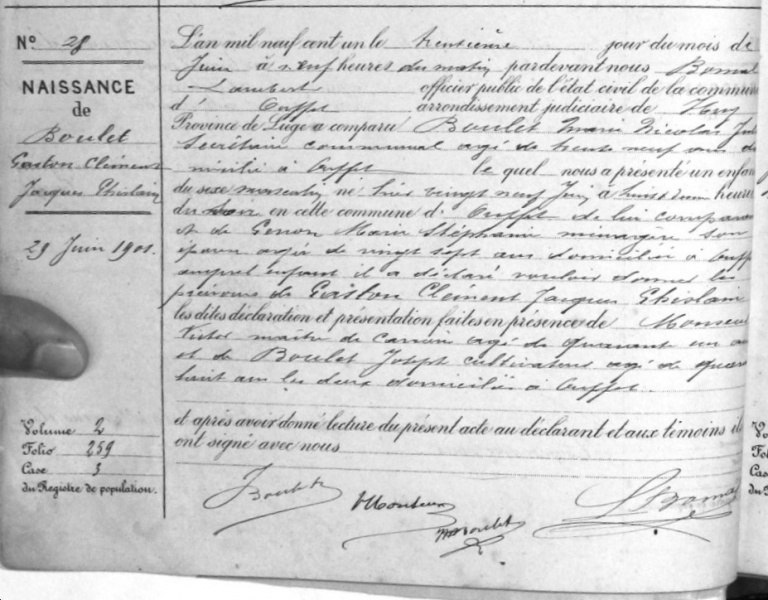 N° 28
NAISSANCE
de
Boulet
Gaston Clément
Jacques Ghislain
29 Juin 1901.
Volume 2
Folio 259
Case 3
du Registre de population.
L'an mil neuf cent un le trentième jour du mois de
Juin à neuf heures du matin pardevant nous
Lambert officier public de l'état civil de la commun
d' Ouffet arrondissement judiciaire de Huy
Province de Liège a comparu Boulet Marie Nicolas
Secrétaire communal agé de trente neuf ans do
micilié à Ouffet lequel nous a présenté un enfan
du sexe masculin né hier vingt neuf Juin à heure
du en cette commune d' Ouffet de lui comparan
et de Genon Marie Stéphanie ménagère son
épouse agée de vingt sept ans domiciliée à Ouff
auquel enfant il a déclaré vouloir donner les
prénoms de Gaston Clément Jacques Ghislain
les dites déclaration et présentation faites en présence de Monseur
Victor maître de carrière agé de quarante un an
et de Boulet Joseph cultivateur agé de quara
huit ans les deux domiciliés à Ouffet.
et après avoir donné lecture du présent acte au déclarant et aux témoins il
ont signé avec nous
J Boulet
VMonseur
Boulet